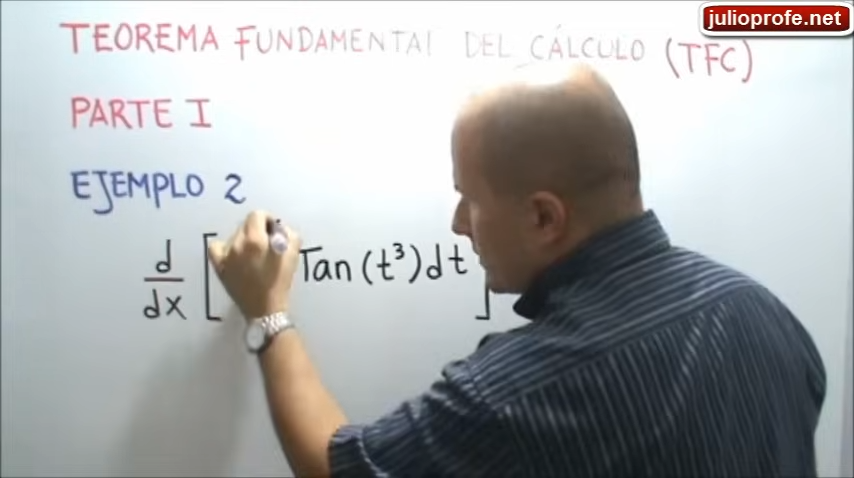 julioprofe.net
TEOREMA FUNDAMENTAL DEL CÁLCULO (TFC)
PARTE I
EJEMPLO 2
d/dx [ Tan (t³) dt ]